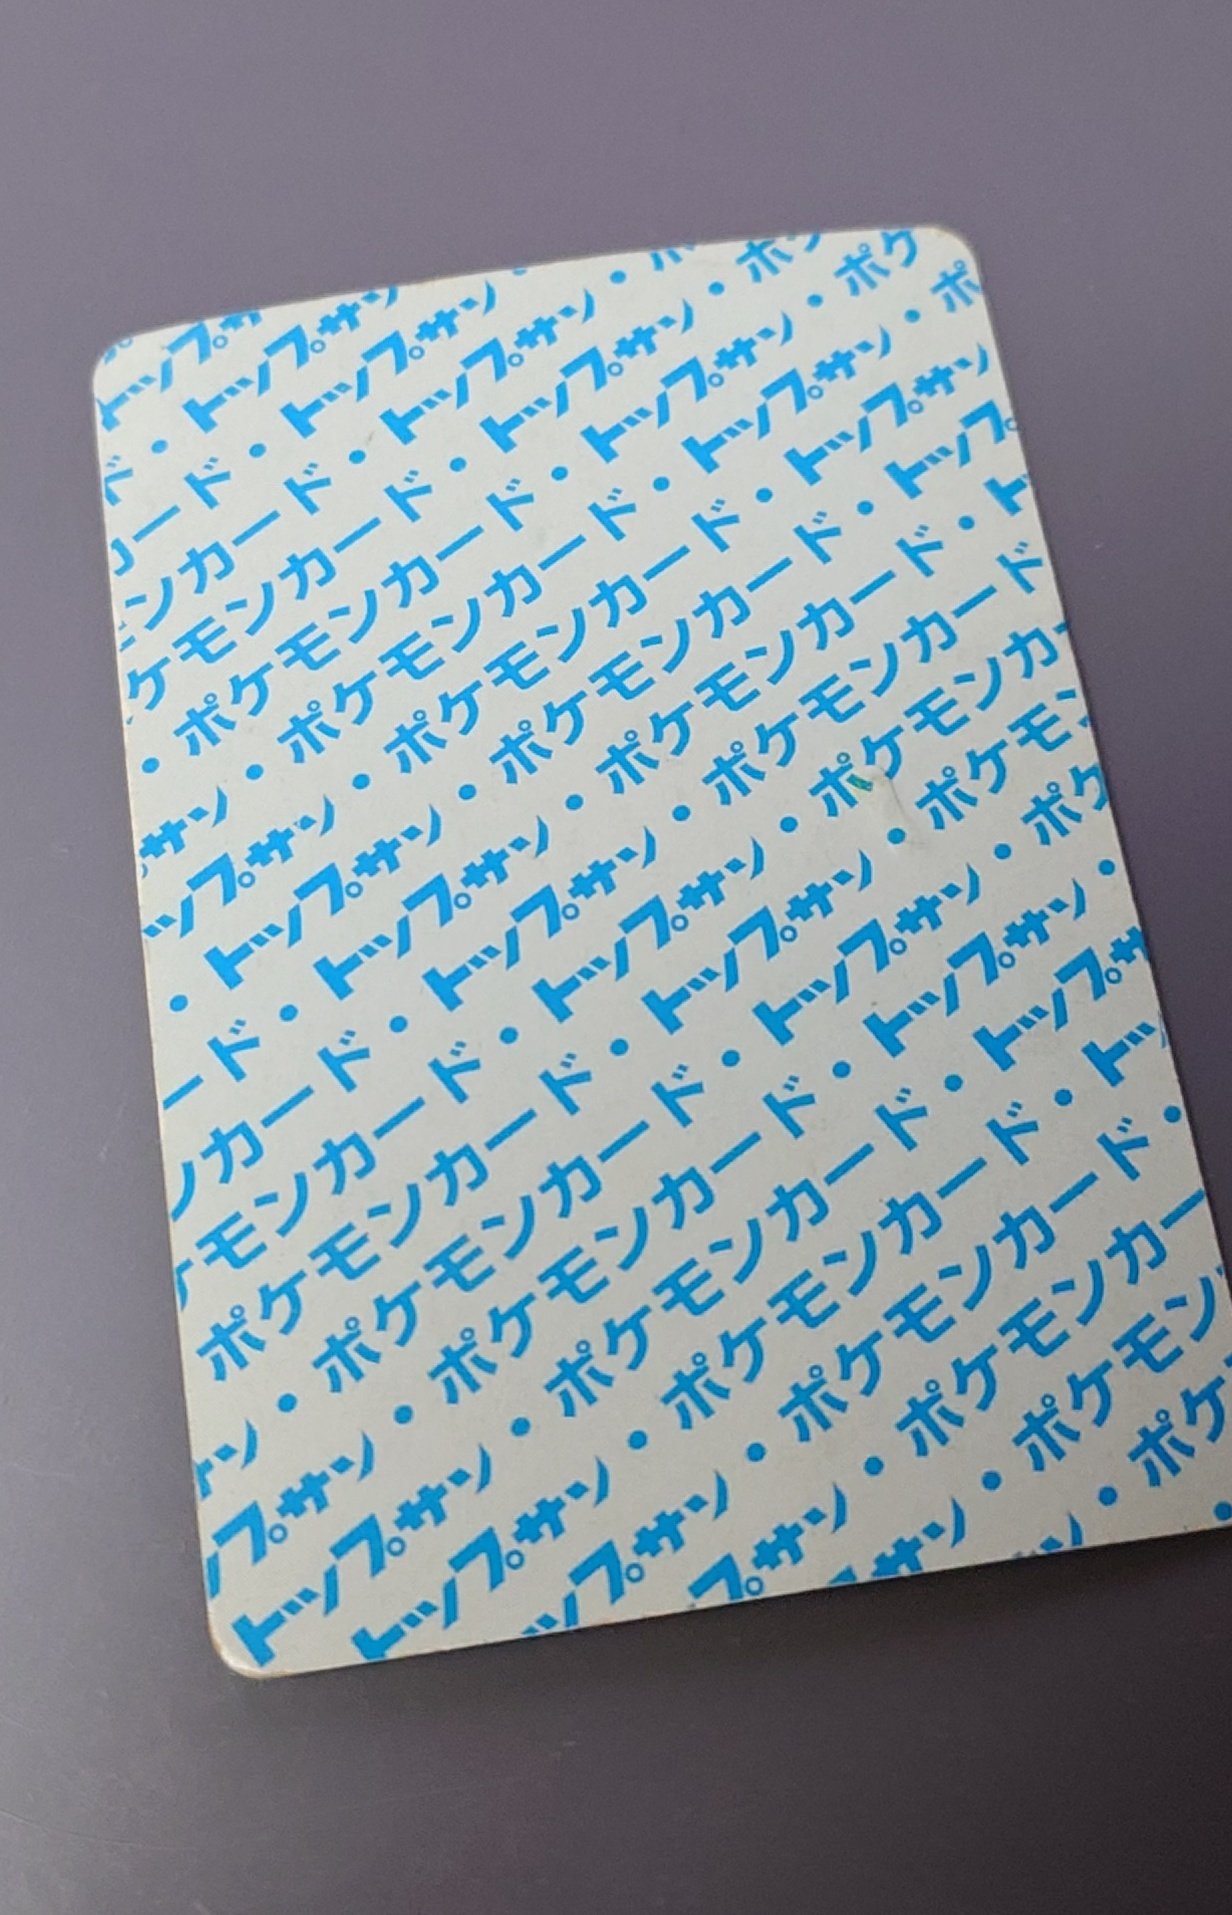 トップサ
ド・トップサン
カード・トップサン・
ンカード・トップサン・ポ
ケモンカード・トップサン・ポケ
・ポケモンカード・トップサン・ポケ
サン・ポケモンカード・トップサン・ポ
ップサン・ポケモンカード・トップサン
・トップサン・ポケモンカード・トップ
ード・トップサン・ポケモンカード・ト
ンカード・トップサン・ポケモンカード
ケモンカード・トップサン・ポケモンカ
ポケモンカード・トップサン・ポケモン
サン・ポケモンカード・トップサン・ポケ
プサン・ポケモンカード・トップサン・
トップサン・ポケモンカード・トップサ
トップサン・ポケモンカード・トッ
ップサン・ポケモンカード・
プサン・ポケモンカー
サン・ポケモン
ン・ポケ